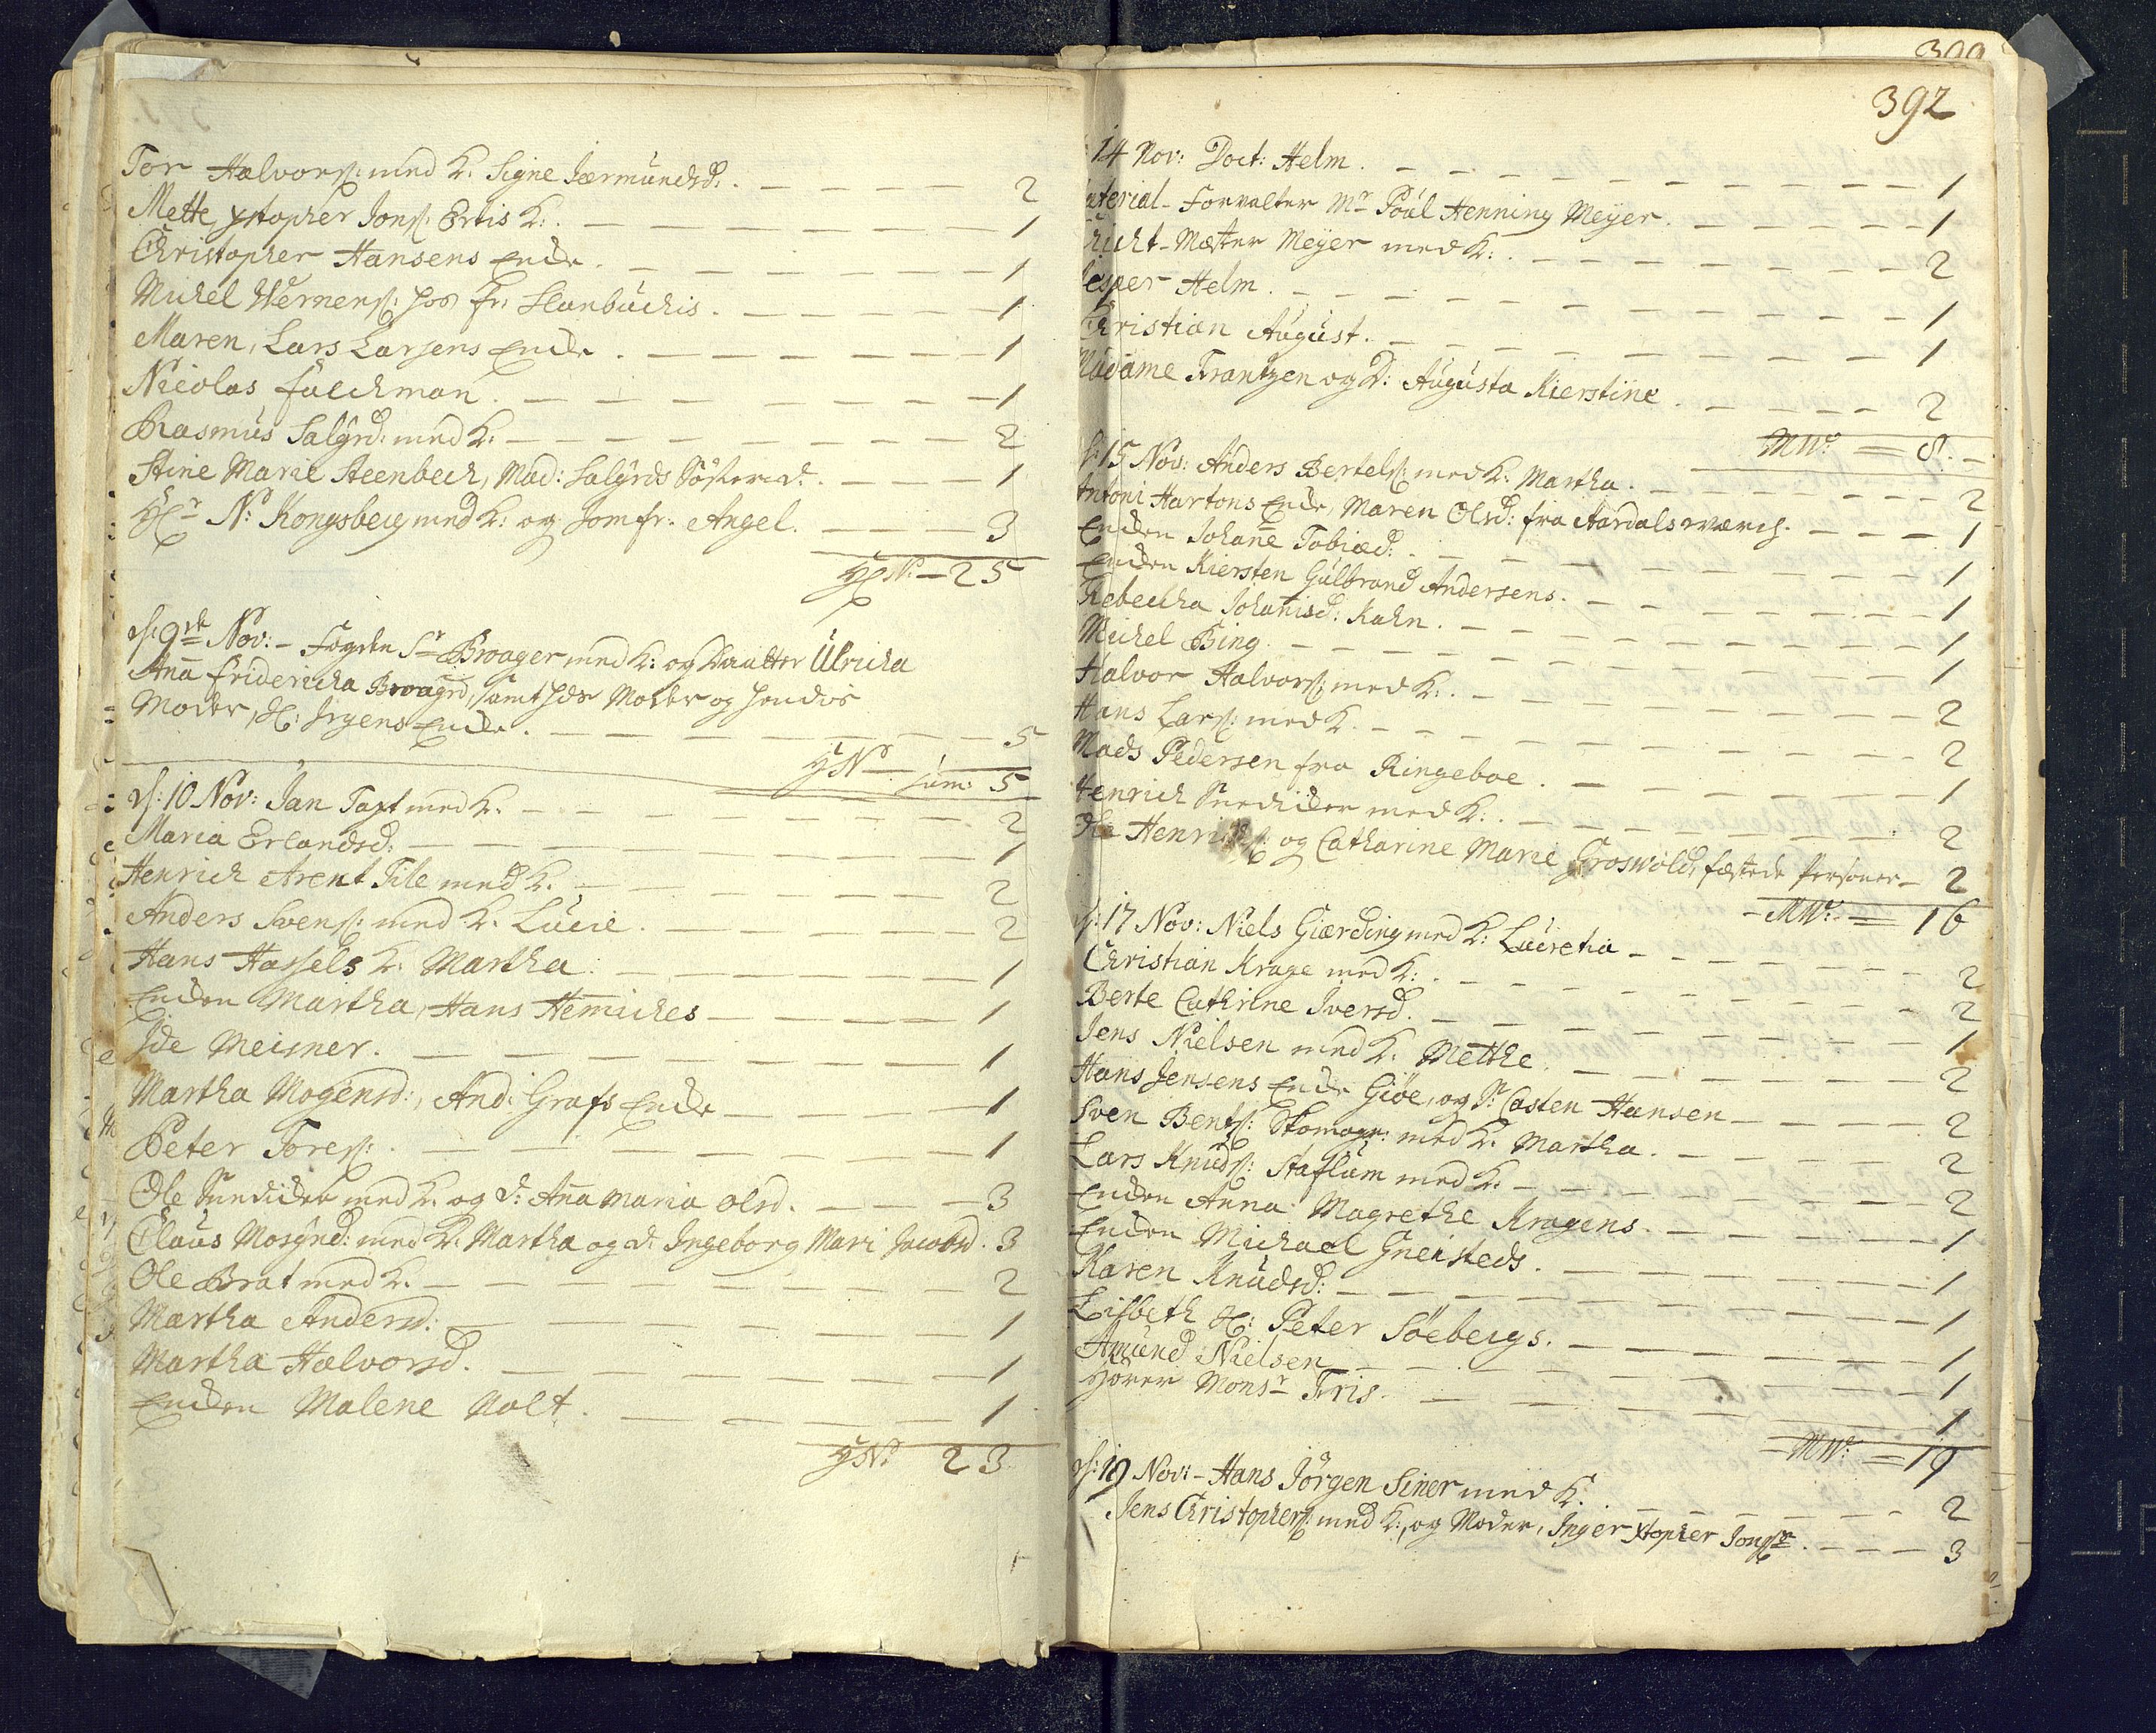 Tor Halvors: med K. Signe Germundsd. 2
Mette Xstopher Jons: Ertis K. 1
Christopher Hansens Encke 1
Michel Werners: hos Fr. 1
Maren, Lars Larsens Encke 1
Nicolas Falckman 1
Rasmus Salgrd: med K. 2
Stine Marie Steenbech, Mad: Salgrds Søster d. 1
Hr N: Kongsberg med K: og Jomfr. Angel. 3
25
d: 9de Nov: - Fogden Sr Broager med K: og Daatter Ulricha
Ana Fridericha Broagrd, samt hds Moder og hendes
Moder, H: Irgens Encke 5
Sum: 5
d: 10 Nov: Jan Taxt med K. 2
Maria Erlandsd: 1
Henrich Arent Tile med K. 2
Anders Svens: med K. Lucie 2
Hans Hassels K. Martha 1
Encken Martha, Hans Hemiches 1
Ide Meisner 1
Martha Mogensd:, And: Grafs Encke 1
Peter Tores: 1
Ole med K. og d: Ana Maria Olsd. 3
Claus Mosgnd: med K. Martha og d. Ingeborg Mari Jacobsd. 3
Ole Brat med K. 2
Martha Andersd: 1
Martha Halvorsd. 1
Encken Malene Nolt 1
23
392
14 Nov: Doct: Helm 1
Material-Forvalter Mr Poul Henning Meyer 1
Meyer med K: 2
Jesper Helm 1
Christian August 1
Madame Frantzen og D: Augusta Kierstine 2
MW: = 8
d: 15 Nov: Anders Bertels: med K. Martha 2
Antoni Hartons Encke, Maren Olsd: fra Aardals werch 1
Encken Johane Tobiæd: 1
Encken Kiersten Gulbrand Andersens 1
Rebechha Johanisd: Kahn 1
Michel Bing 1
Halvor Halvors: med K: 2
Hans Lars: med K. 2
Mads Pedersen fra Ringeboe 1
Henrich med K: 2
Ole Henrichs: og Catharine Marie Groswold, fæstede Personer 2
MW: = 16
d: 17 Nov: Niels Giærding med K: Lucretia 2
Christian Krage med K: 2
Berte Cathrine Iversd. 1
Jens Nielsen med K. Metthe 2
Hans Jensens Encke Giøe, og Casten Hansen 2
Sven Bents: Skomagr: med K. Martha 2
Lars Knuds: Staflum med K. 2
Encken Anna Magrethe Kragens 1
Encken Michael Gneisteds 1
Karen Knudsd: 1
Lisbeth H: Peter Søebergs 1
Amund Nielsen 1
Hører Monsr Friis 1
MW: = 19
d: 19 Nov: - Hans Jörgen Siner med K. 2
Jens Christophers: med K:, og Moder, Inger Xstopher Jons: 3